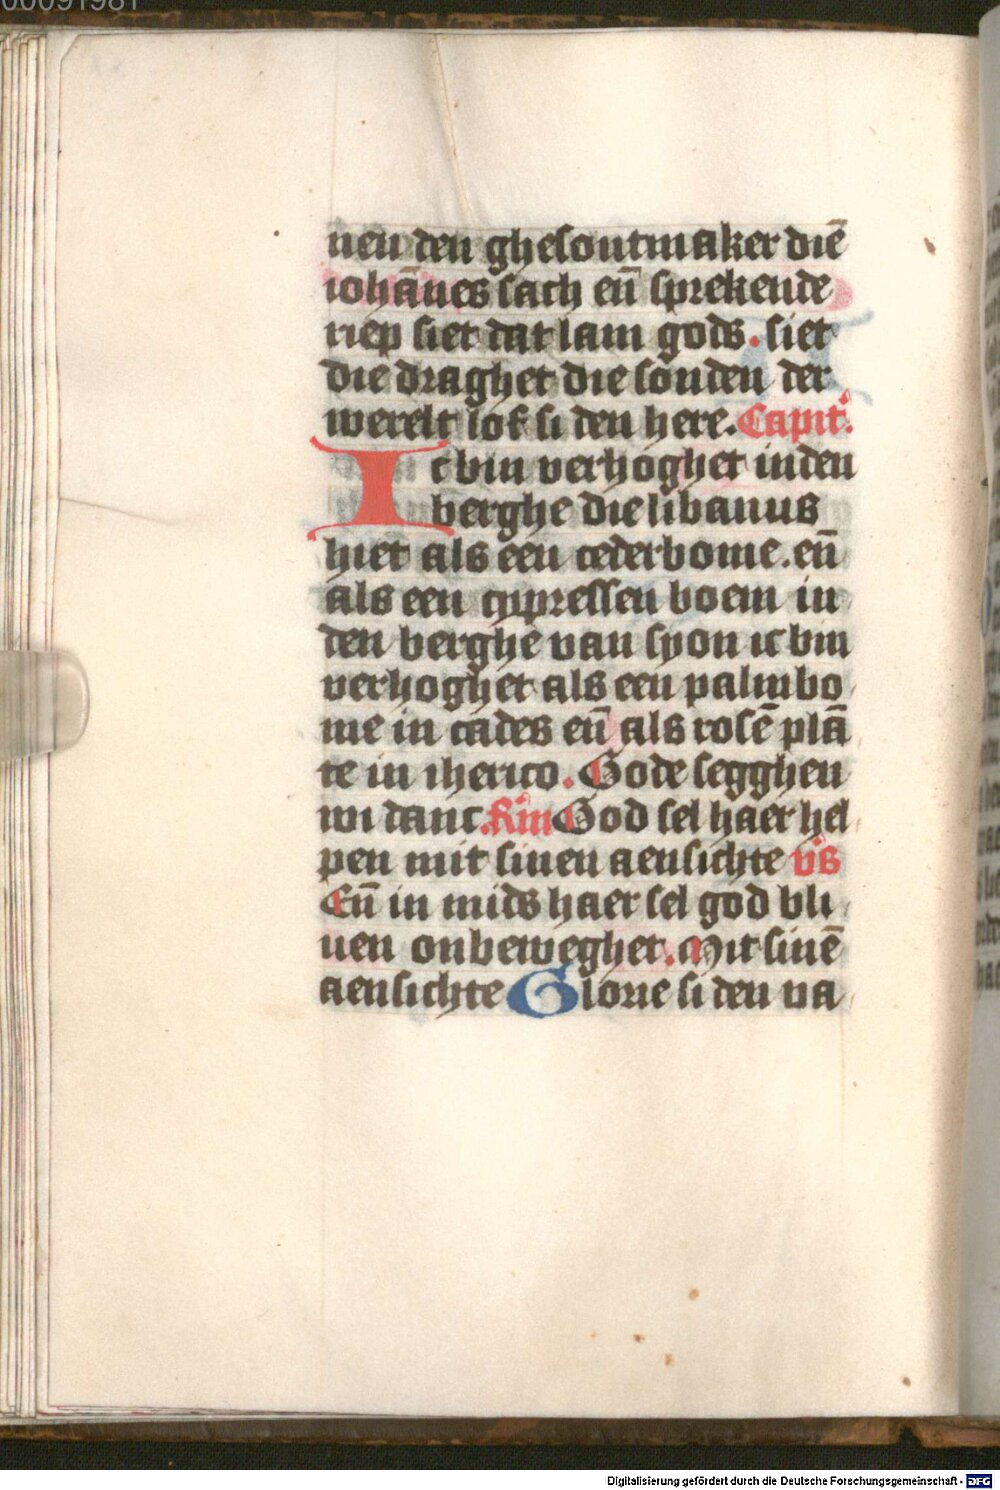 00091981
uen den ghesontmaker diē
iohānes sach eñ sprekende
riep siet dat lam gods. siet
die draghet die sonden der
werelt lof si den here. Capit̄.
Ic bin verhoghet in den
berghe die libanus
hiet als een cederbome. eñ
als een cypressen boem in
den berghe van syon ic bin
verhoghet als een palmbo
me in cades eñ als rosē plā
te in iherico. Gode segghen
wi danc. R̄m God sel haer hel
pen mit sinen aensichte v̄s
Eñ in mids haer sel god bli
uen onbeweghet. Mit sinē
aensichte Glorie si den va
Digitalisierung gefördert durch die Deutsche Forschungsgemeinschaft - DFG